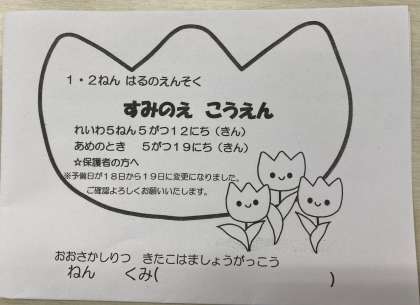 1・2ねん はるのえんそく
すみのえ こうえん
れいわ5ねん5がつ12にち(きん)
あめのとき 5がつ19にち(きん)
☆保護者の方へ
※予備日が18日から19日に変更になりました。
ご確認よろしくお願いいたします。
おおさかしりつ きたこはましょうがっこう
ねん くみ( )